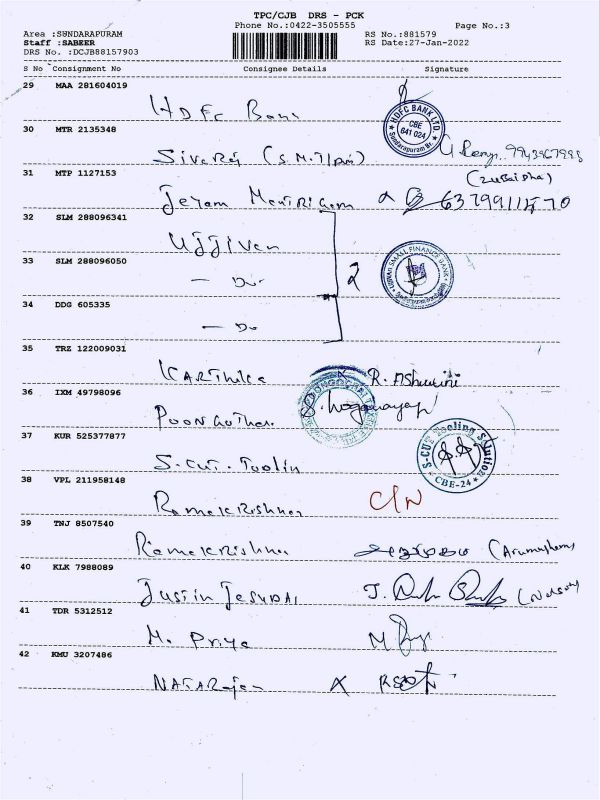 TPC/CJB DRS - PCK
Phone No.:0422-3505555 Page No.:3
Area :SUNDARAPURAM RS No.:881579
Staff :SABEER RS Date:27-Jan-2022
DRS No. :DCJB88157903
S No Consignment No Consignee Details Signature
29 MAA 281604019
HDFC Bank
HDFC BANK LTD.
CBE
641 024
Sundarapuram Br.
30 MTR 2135348
Sivaraj
31 MTP 1127153
Jeyam 6379911570
32 SLM 288096341
Ujjivan
33 SLM 288096050
— Do —
SMALL FINANCE BANK
34 DDG 605335
— Do
35 TRZ 122009031
Karthika X R. Ashwini
36 IXM 49798096
37 KUR 525377877
S-CUT Toolin
S-CUT Tooling Solution
CBE-24
38 VPL 211958148
Ramakrishna C/N
39 TNJ 8507540
Ramakrishna
40 KLK 7988089
Justin Jesudas
41 TDR 5312512
M. Priya
42 KMU 3207486
Natarajan X